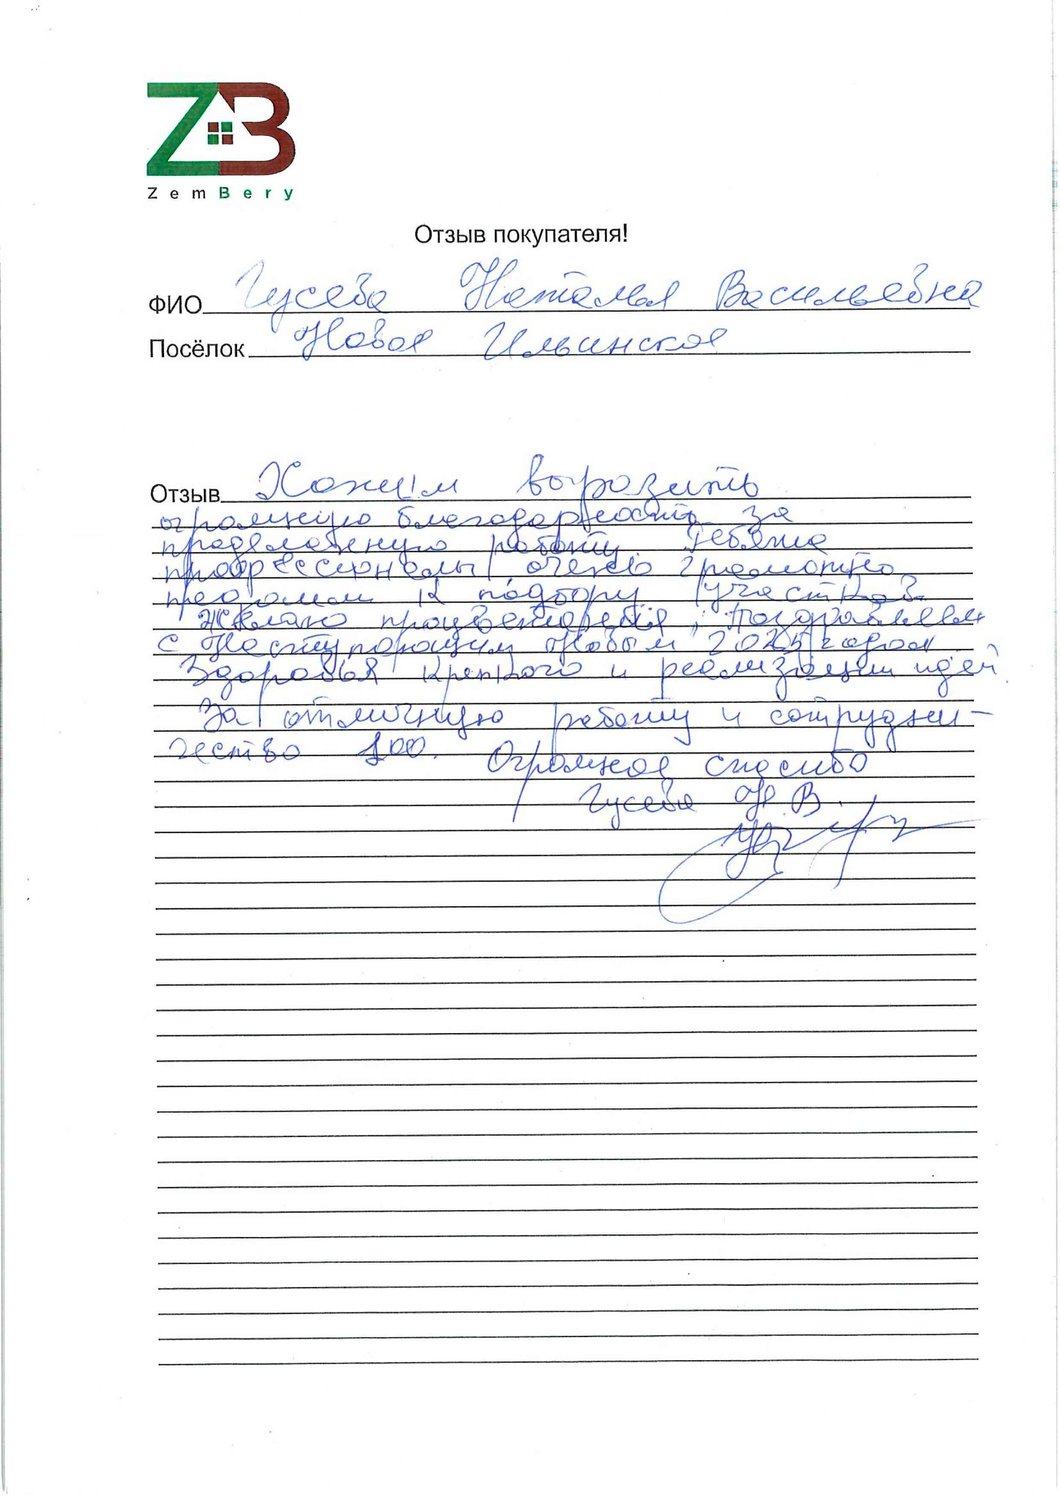 ZB
ZemBery
Отзыв покупателя!
ФИО Гусева Наталья Васильевна
Посёлок Новое Ильинское
Отзыв Хотим выразить
огромную благодарность за
проделаную работу. Ребята
профессионалы, очень грамотно
к подбору участков.
Желаю процветания, Поздравляем
с Наступающим Новым 2025 годом
Здоровья крепкого и реализации идей
За отличную работу и сотрудни-
чество 100. Огромное спасибо
Гусева Н. В.